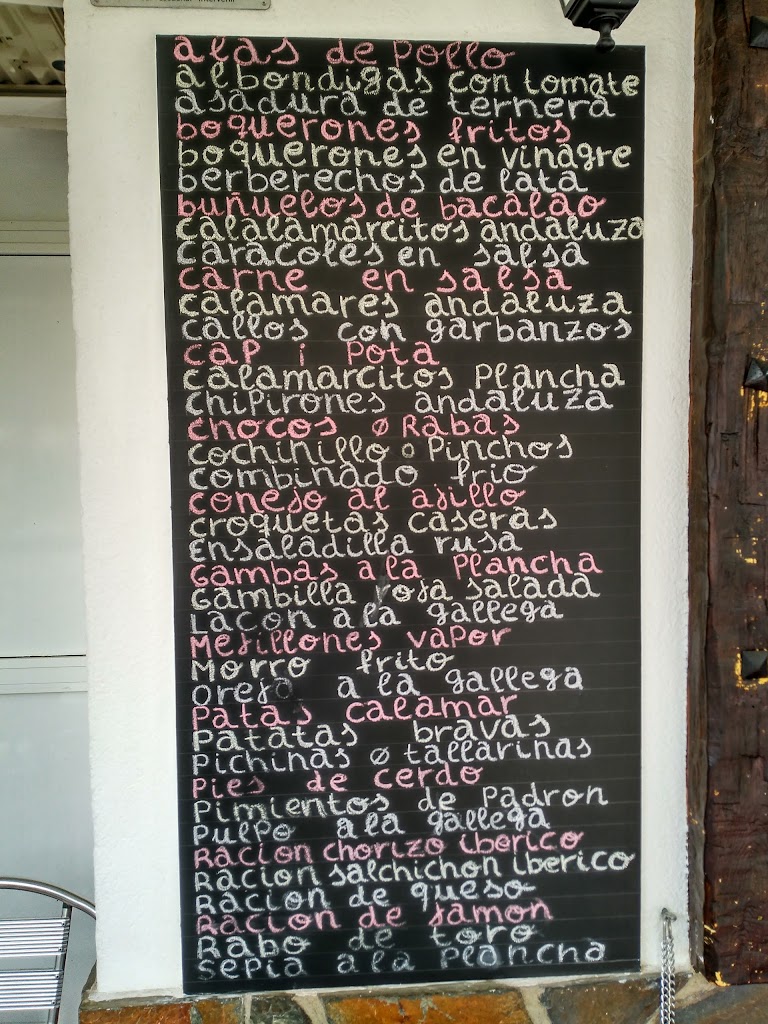 alas de pollo
albondigas con tomate
asadura de ternera
boquerones fritos
boquerones en vinagre
berberechos de lata
buñuelos de bacalao
calalamarcitos andaluza
caracoles en salsa
carne en salsa
calamares andaluza
callos con garbanzos
cap i pota
calamarcitos plancha
chipirones andaluza
chocos ø Rabas
cochinillo o Pinchos
combinado frio
conejo al ajillo
croquetas caseras
Ensaladilla rusa
Gambas a la Plancha
Gambilla roja salada
Lacon a la gallega
Mejillones vapor
Morro frito
oreja a la gallega
Patas calamar
Patatas bravas
Pichinas ø tallarinas
Pies de cerdo
Pimientos de Padron
Pulpo a la gallega
Racion chorizo iberico
Racion salchichon iberico
Racion de queso
Racion de jamon
Rabo de toro
Sepia a la Plancha